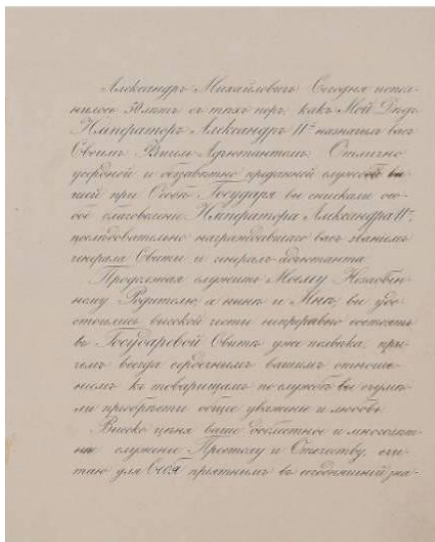 Александръ Михайловичъ. Сегодня испол-
нилось 50 лѣтъ съ тѣхъ поръ, какъ Мой Дѣдъ
Императоръ Александръ IIй назначилъ васъ
Своимъ Флигель-Адъютантомъ. Отлично
усердной и беззавѣтно преданной службой ва-
шей при Особѣ Государя вы снискали осо-
бое благоволеніе Императора Александра IIго,
послѣдовательно награждавшаго васъ званіемъ
генерала Свиты и генералъ-адъютанта.
Продолжая служить Моему Незабвен-
ному Родителю, а нынѣ и Мнѣ, вы удо-
стоились высокой чести непрерывно состоять
въ Государевой Свитѣ уже полвѣка, при-
чемъ всегда сердечнымъ вашимъ отноше-
ніемъ къ товарищамъ по службѣ вы съумѣ-
ли пріобрѣсти общее уваженіе и любовь.
Высоко цѣня ваше доблестное и многолѣт-
нее служеніе Престолу и Отечеству, счи-
таю для Себя пріятнымъ въ сегодняшній зна-